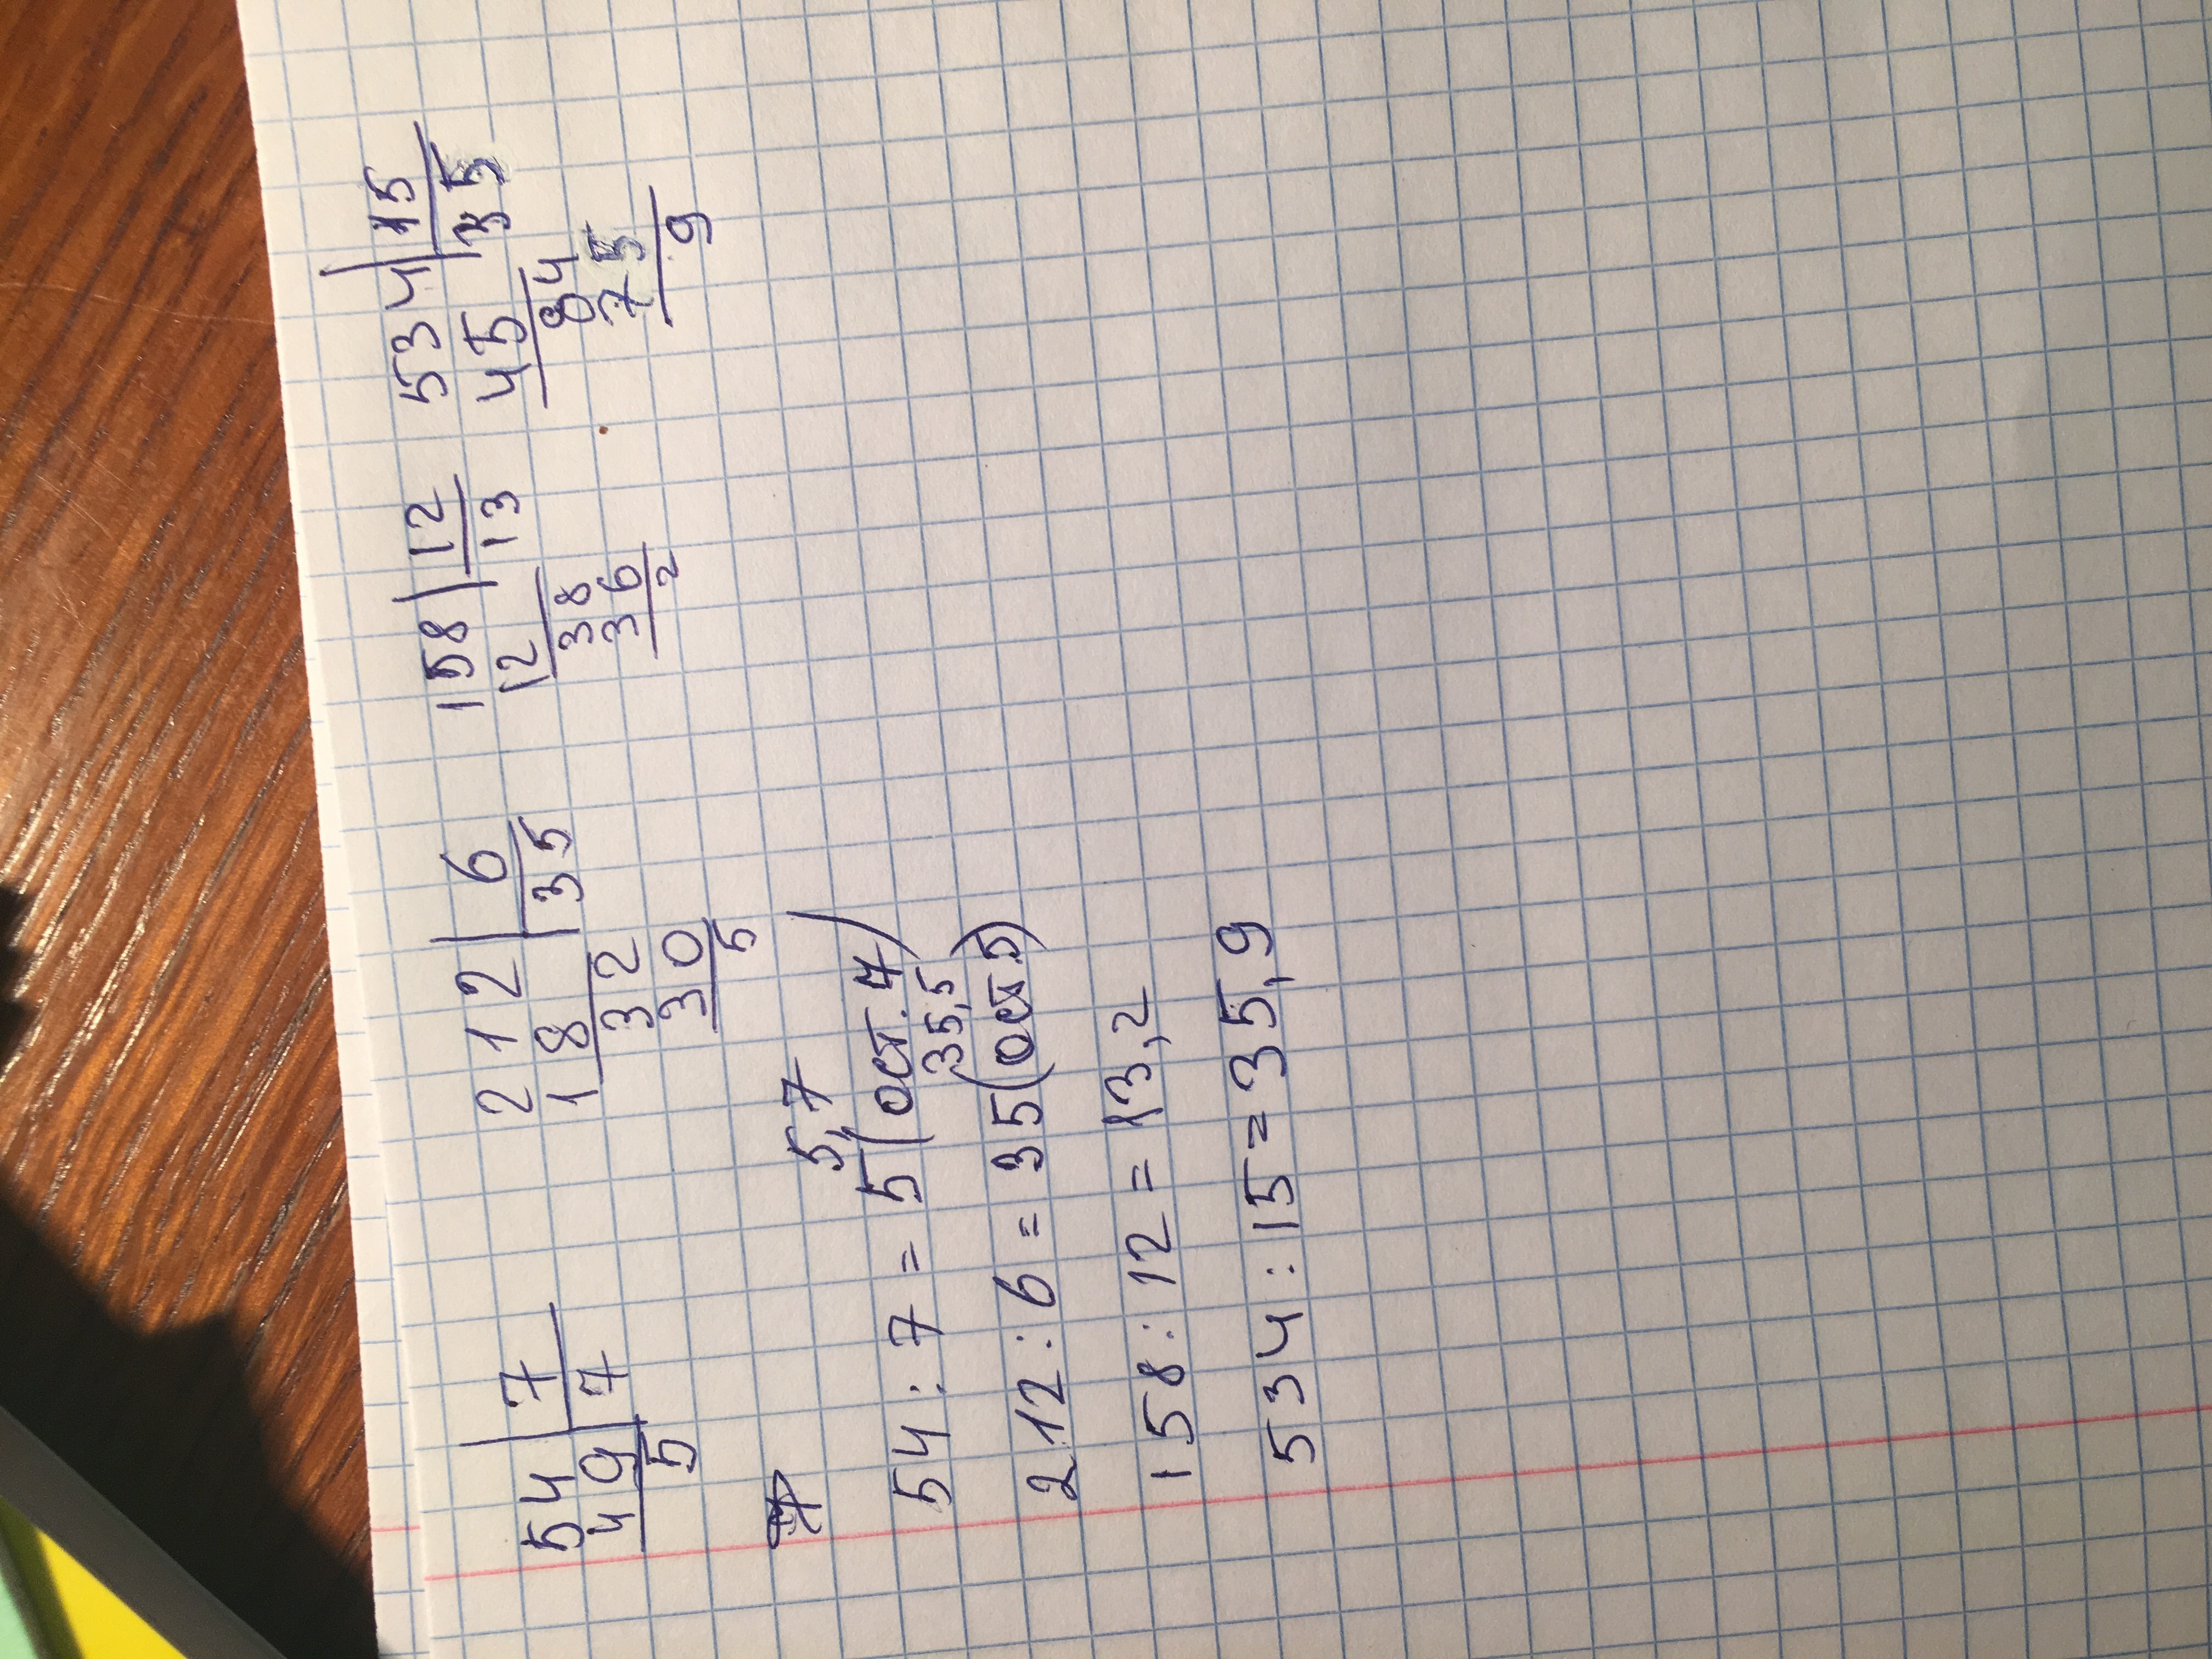 54 7 212 6 158 12 534 15
49 7 18 35 12 13 45 35
5 32 38 84
30 36 75
5 2 9
5,7
54 : 7 = 5 (ост. 7)
35,5
212 : 6 = 35 (ост 5)
158 : 12 = 13,2
534 : 15 = 35,9